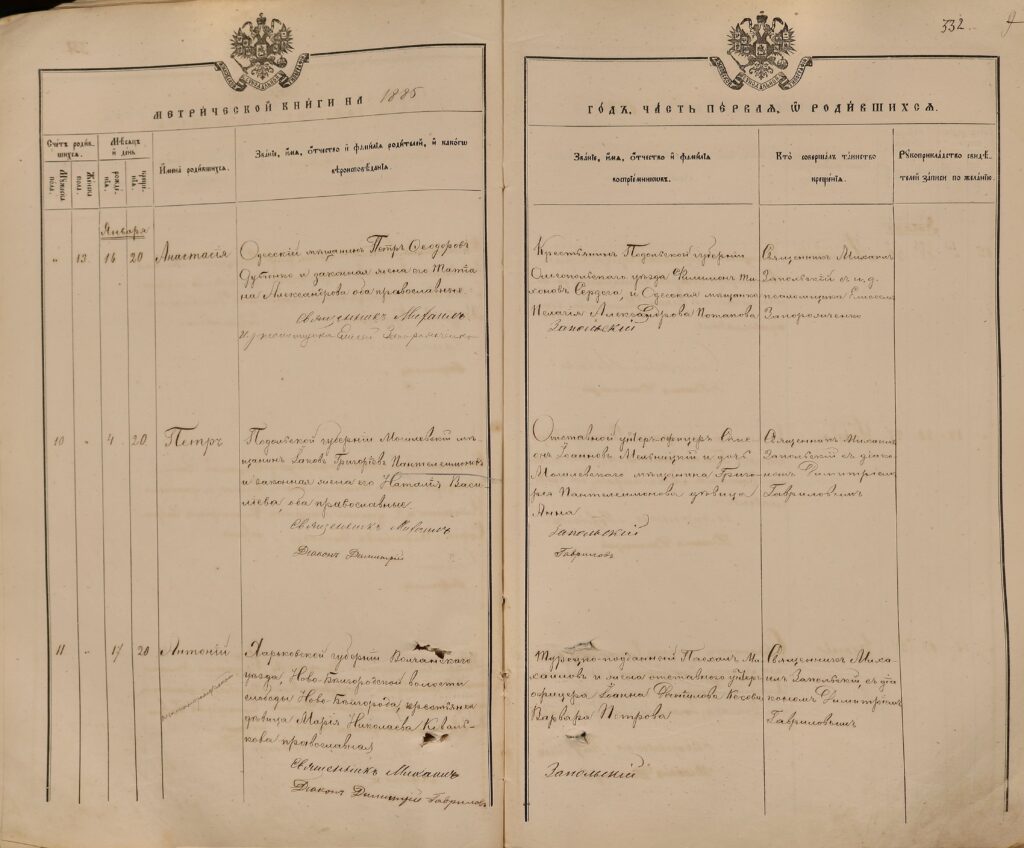 332
МЕТРИ́ЧЕСКОЙ КНИ́ГИ НА 1885
ГО́ДЪ, ЧА́СТЬ ПЕ́РВАЯ, Ѡ РОДИ́ВШИХСЯ.
Сче́тъ роди́вшихся.
Мѣ́сяцъ и день
Имена̀ роди́вшихся.
Зва́нїе, и́мя, ѻ́тчество и̂ фами́лїя роди́телей, и̂ како́гѡ вѣроисповѣ́данїя.
Му́жеска пола.
Же́нска пола.
рожде́нїя.
креще́нїя.
Зва́нїе, и́мя, ѻ́тчество и̂ фами́лїя воспрїе́мниковъ.
Кто̀ соверша́лъ та́инство креще́нїя.
Рꙋкоприкла́дство свидѣ́телей за́писи по жела́нїю.
Января
" 13 16 20 Анастасія
Одесскій мѣщанинъ Петръ Ѳеодоровъ
и законная жена его Татіа
на Александрова оба православные.
Священникъ Михаилъ
Крестьянинъ Подольской губерніи
Ольгопольскаго уѣзда Филимонъ Ти
хоновъ Сердега, и Одесская мѣщанка
Пелагія Александрова Потапова
Запольскій
Священникъ Михаилъ
Запольскій съ и. д.
псаломщика Елисеемъ
Запороженко
10 " 4 20 Петръ
Подольской губерніи Могилевскій мѣ-
щанинъ Іаковъ Григоріевъ Пантелеимоновъ
и законная жена его Наталія Васи
ліева, оба православные.
Священникъ Михаилъ
Діаконъ Димитрій
Отставной унтеръ-офицеръ Симе
онъ Іоанновъ Мельницкій и дочь
Могилевскаго мѣщанина Григо
рія Пантелеимонова дѣвица
Анна
Запольскій
Гавриловъ
Священникъ Михаилъ
Запольскій съ діако-
номъ Димитріемъ
Гавриловымъ
11 " 17 20 Антоній
Харьковской губерніи Волчанскаго
уѣзда, Ново-Бѣлгородской волости
слободы Ново-Бѣлгорода, крестьянка
дѣвица Марія Николаева
православная,
Священникъ Михаилъ
Діаконъ Димитрій Гавриловъ
Турецко-подданной Пасхалъ Ми
хаиловъ и жена отставного унтеръ
офицера Іоанна Данилова Косова
Варвара Петрова
Запольскій
Священникъ Миха-
илъ Запольскій, съ діа
кономъ Димитріемъ
Гавриловымъ